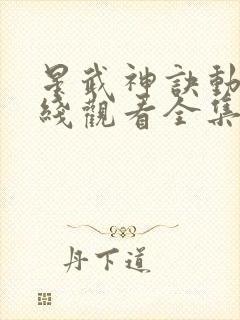 星武神訣動
綫觀看全集
丹下道